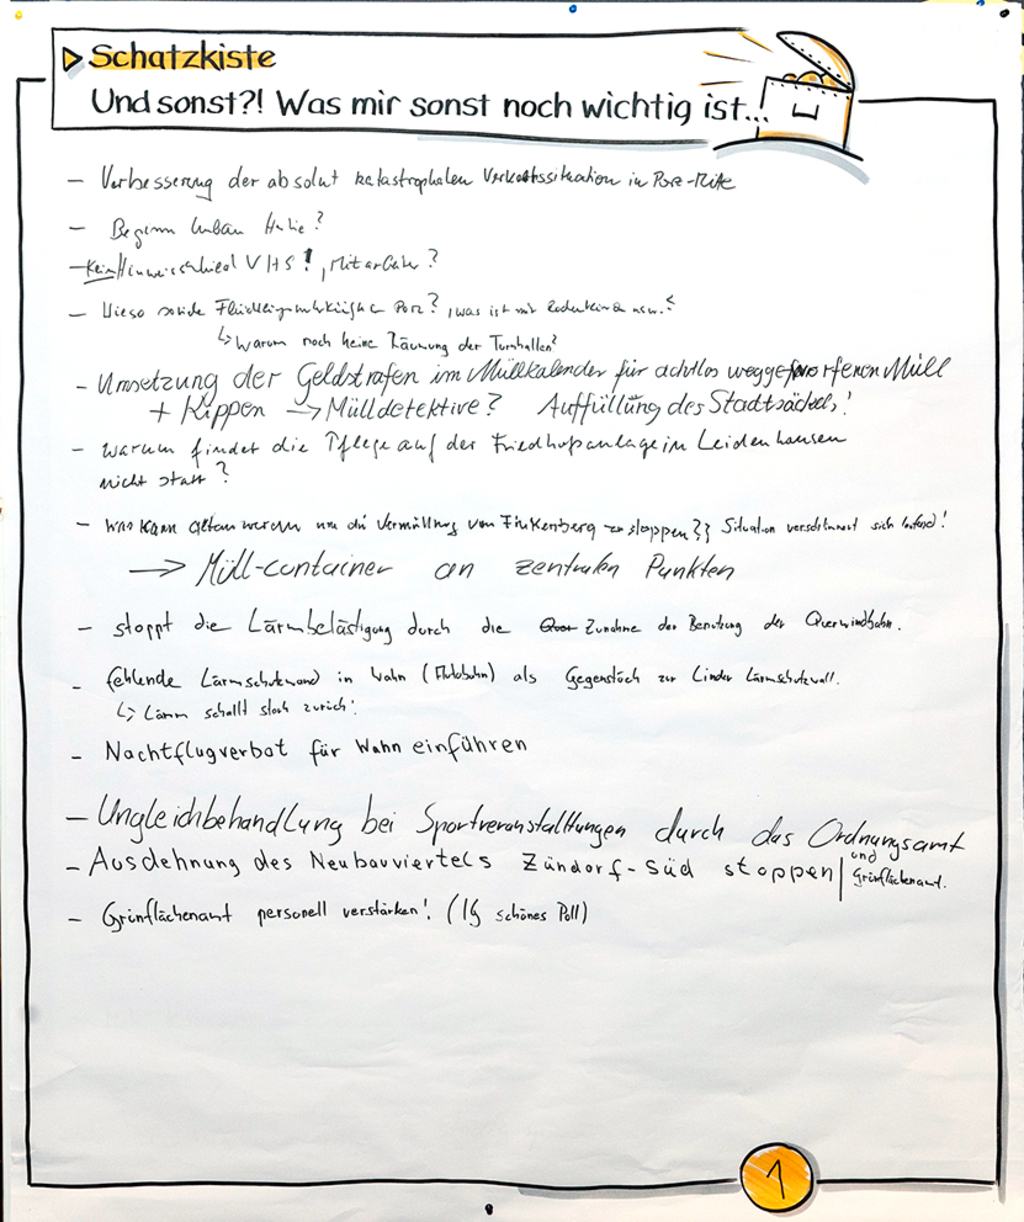 Schatzkiste
Und sonst?! Was mir sonst noch wichtig ist...!
- Verbesserung der absolut katastrophalen Verkehrssituation in Porz-Mitte
- Beginn Urban
- Kein Hinweisschild VHS!, Mitarbeiter?
- Wieso solide Porz?, was ist mit usw.?
↳ Warum noch keine Räumung der Turnhallen?
- Umsetzung der Geldstrafen im Müllkalender für achtlos weggeworfenen Müll
+ Kippen → Mülldetektive? Auffüllung des Stadtsäckels!
- warum findet die Pflege auf der Friedhofsanlage in Leidenhausen
nicht statt?
- Was kann getan werden um die Vermüllung von Finkenberg zu stoppen?? Situation verschlimmert sich laufend!
→ Müll-container an zentralen Punkten
- stoppt die Lärmbelästigung durch die Zunahme der Benutzung der Querwindbahn.
- fehlende Lärmschutzwand in Wahn (Autobahn) als Gegenstück zur Linder Lärmschutzwall.
↳ Lärm schallt stark zurück!
- Nachtflugverbot für Wahn einführen
- Ungleichbehandlung bei Sportveranstaltungen durch das Ordnungsamt
und Grünflächenamt.
- Ausdehnung des Neubauviertels Zündorf-Süd stoppen
- Grünflächenamt personell verstärken! (IG schönes Poll)
1